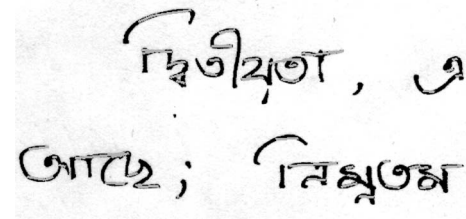 দ্বিতীয়তা, এ
আছে; নিম্নতম